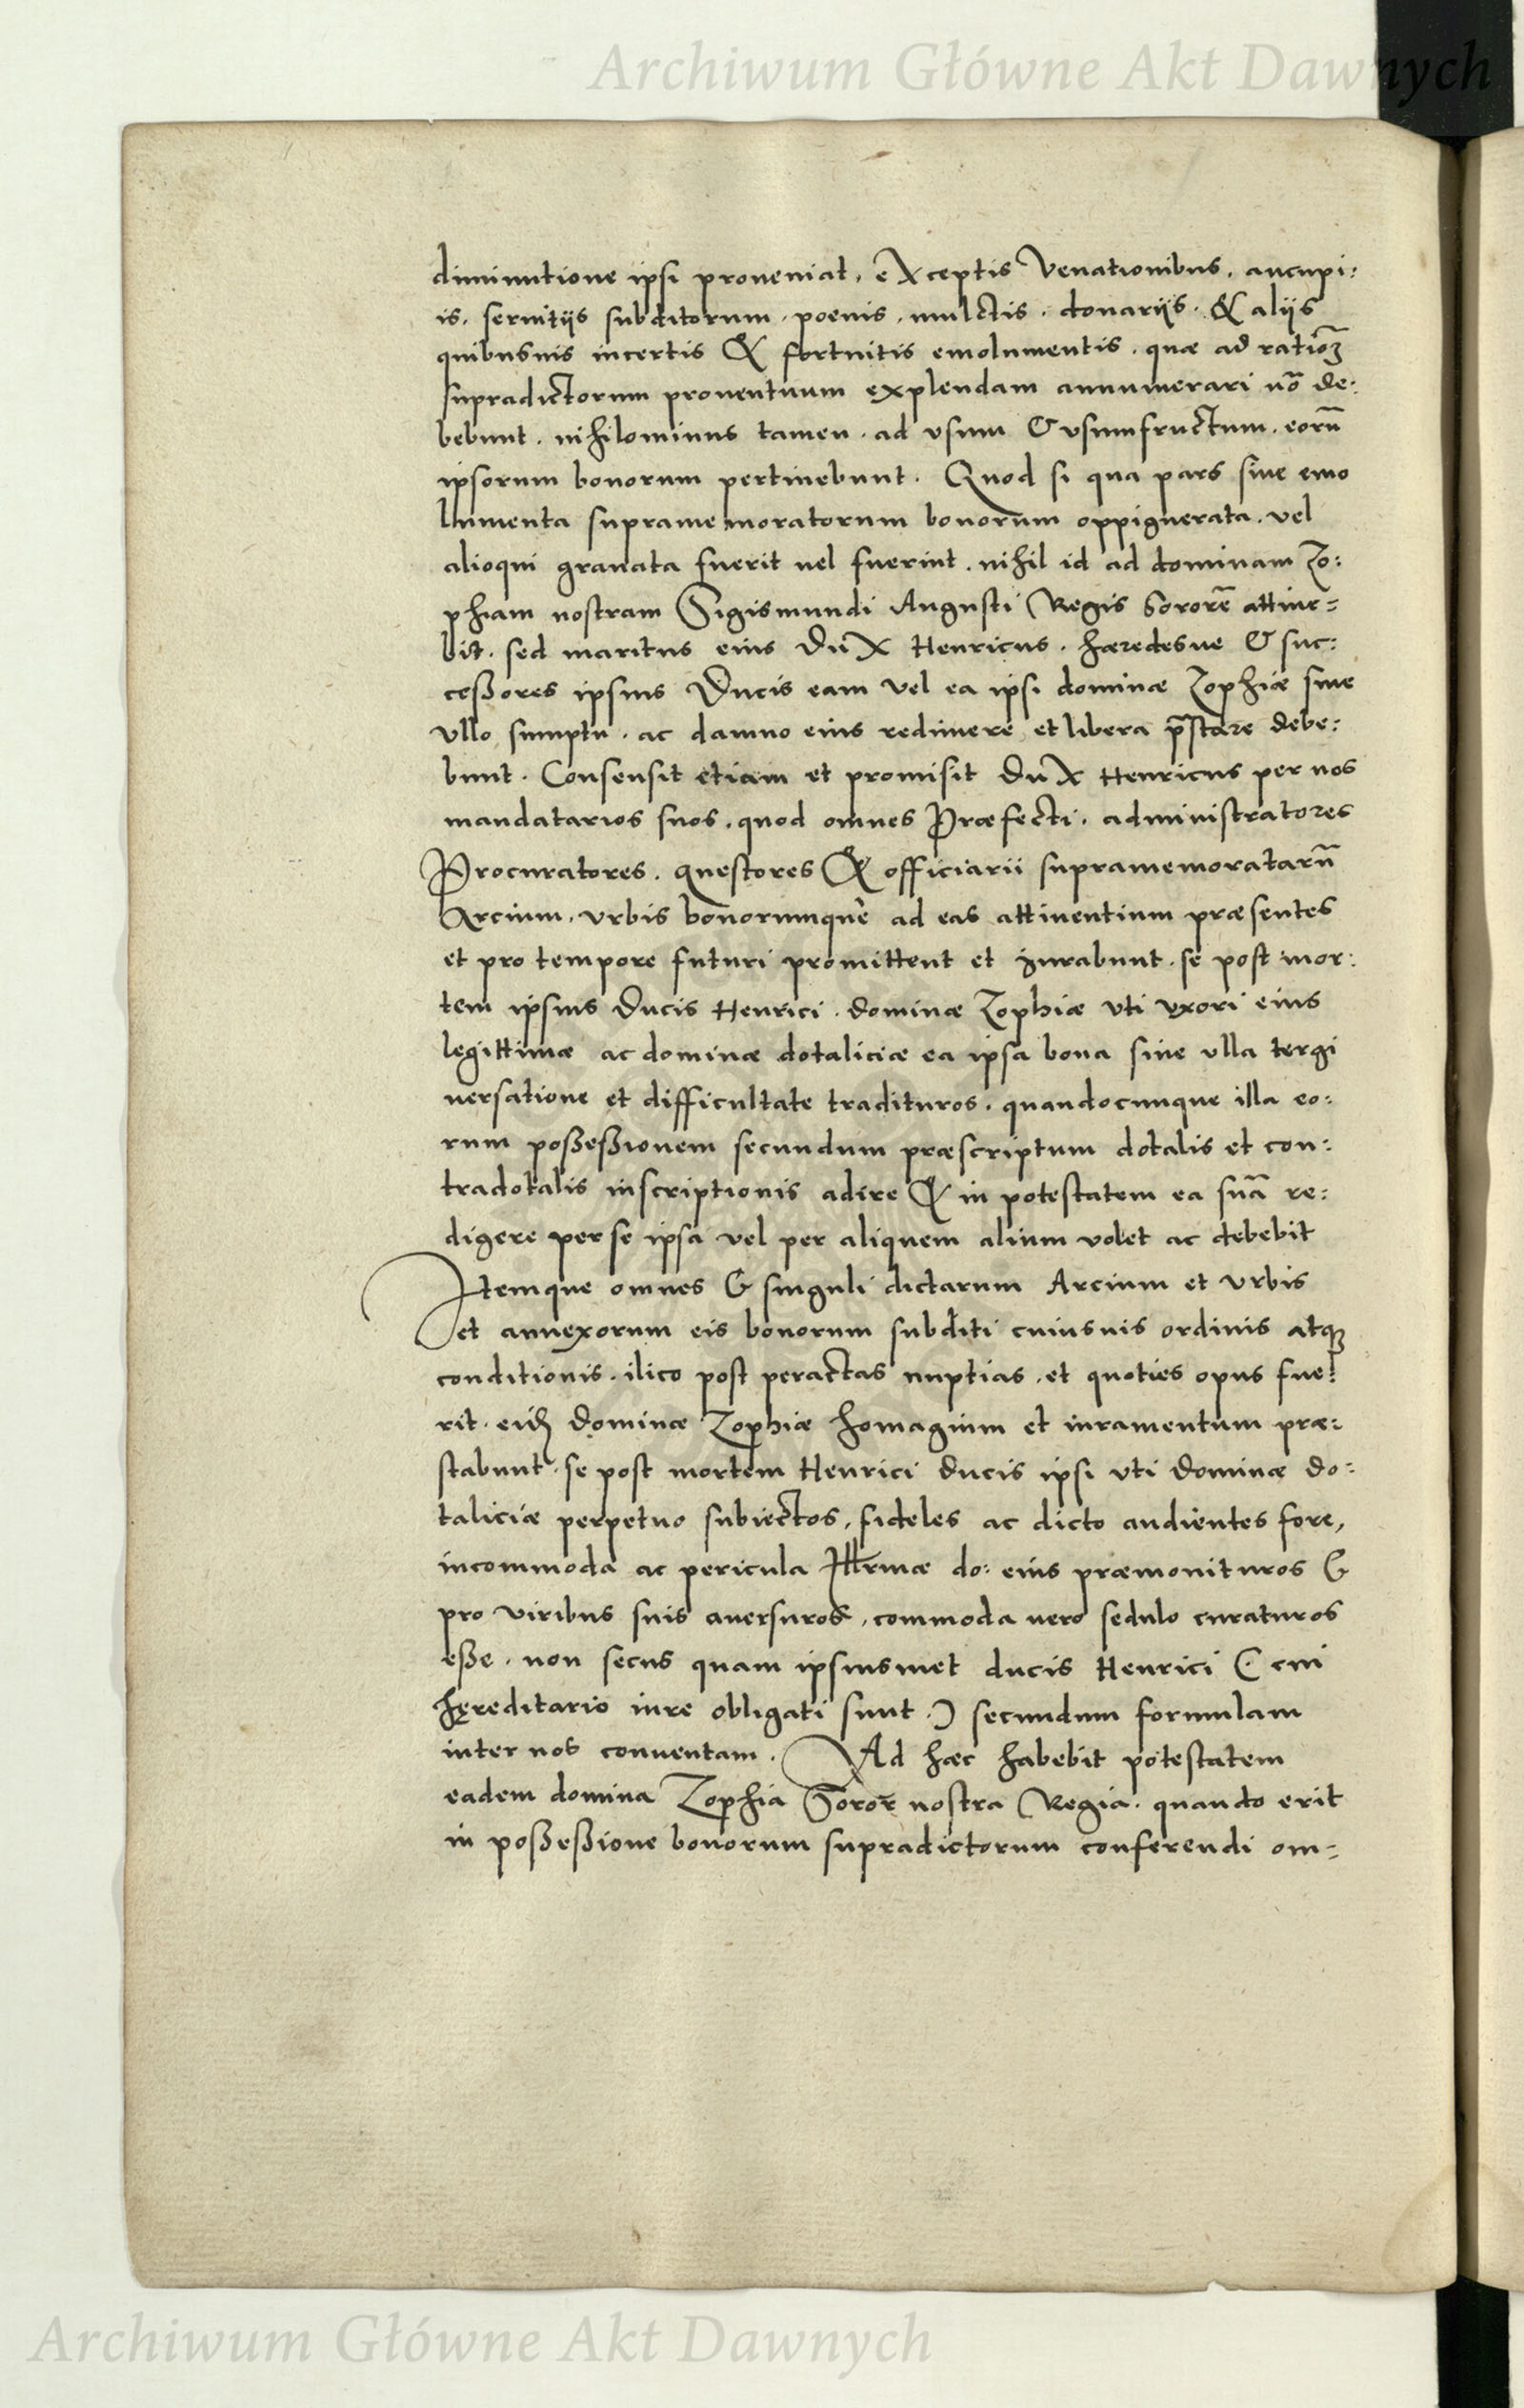 Archiwum Główne Akt Dawnych
diminutione ipsi proueniat, eXceptis Venationibus, aucupi:
is, seruitijs subditorum, poenis, mulctis, donarijs, & alijs
quibusuis incertis & fortuitis emolumentis, quæ ad ratioẽ
supradictorum prouentuum explendam annumerari nõ de:
bebunt, nihilominus tamen, ad vsum & vsumfructum, eorũ
ipsorum bonorum pertinebunt. Quod si qua pars siue emo
lumenta supramemoratorum bonorum oppignerata, vel
alioqui grauata fuerit uel fuerint, nihil id ad dominam Zo:
phiam nostram Sigismundi Augusti Regis Sororẽ attine=
bit, sed maritus eius DuX Henricus, hæredesue & suc:
ceßores ipsius Ducis eam vel ea ipsi dominæ Zophiæ sine
vllo sumptu, ac damno eius redimere et libera p̃stare debe:
bunt. Consensit etiam et promisit DuX Henricus per nos
mandatarios suos, quod omnes Præfecti, administratores
Procuratores, questores & officiarii supramemoratarũ
Arcium, vrbis bonorumque ad eas attinentium præsentes
et pro tempore futuri promittent et iurabunt, se post mor:
tem ipsius Ducis Henrici, dominæ Zophiæ vti vxori eius
legittimæ ac dominæ dotaliciæ ea ipsa bona sine vlla tergi
uersatione et difficultate tradituros, quandocunque illa eo:
rum poßeßionem secundum præscriptum dotalis et con:
tradotalis inscriptionis adire & in potestatem ea suã re:
digere per se ipsa vel per aliquem alium volet ac debebit
Itemque omnes & singuli dictarum Arcium et Vrbis
et annexorum eis bonorum subditi cuiusuis ordinis atq3
conditionis, ilico post peractas nuptias, et quoties opus fue:
rit, eid dominæ Zophiæ homagium et iuramentum præ:
stabunt, se post mortem Henrici ducis ipsi vti dominæ do:
taliciæ perpetuo subiectos, fideles ac dicto audientes fore,
incommoda ac pericula Illrmæ do: eius præmonituros &
pro viribus suis auersuros, commoda uero sedulo curaturos
eße, non secus quam ipsiusmet ducis Henrici (cui
hęreditario iure obligati sunt.) secundum formulam
inter nos conuentam. Ad hæc habebit potestatem
eadem domina Zophia Soror nostra Regia, quando erit
in poßeßione bonorum supradictorum conferendi om=
Archiwum Główne Akt Dawnych